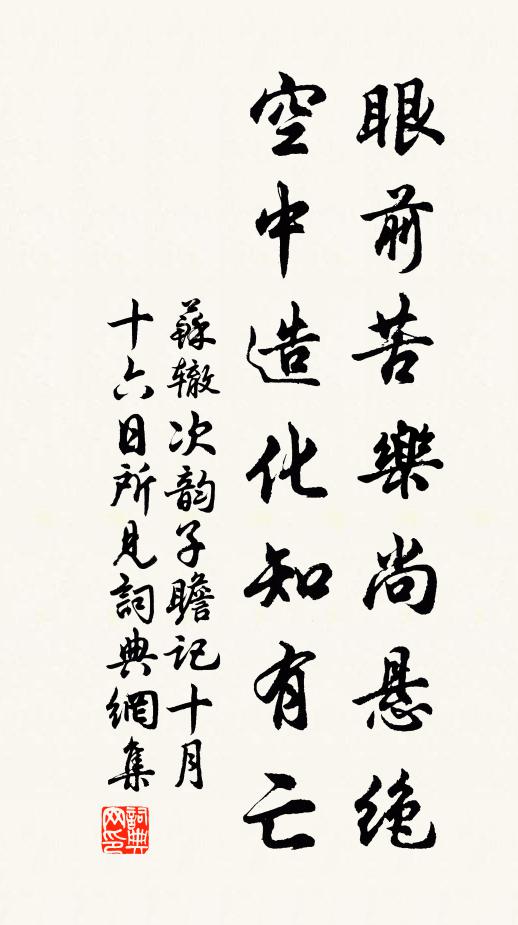 眼前苦樂尚悬绝
空中造化知有亡
蘇辙次韵子瞻记十月
十六日所見詞典網集
詞典
网印